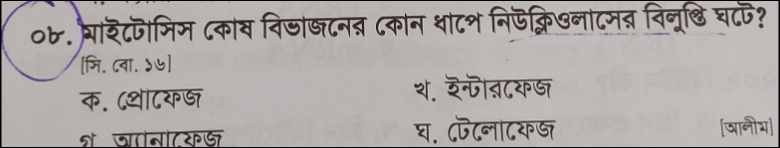 ০৮. মাইটোসিস কোষ বিভাজনের কোন ধাপে নিউক্লিওলাসের বিলুপ্তি ঘটে?
[সি. বো. ১৬]
ক. প্রোফেজ খ. ইন্টারফেজ
গ. অ্যানাফেজ ঘ. টেলোফেজ [আলীম]